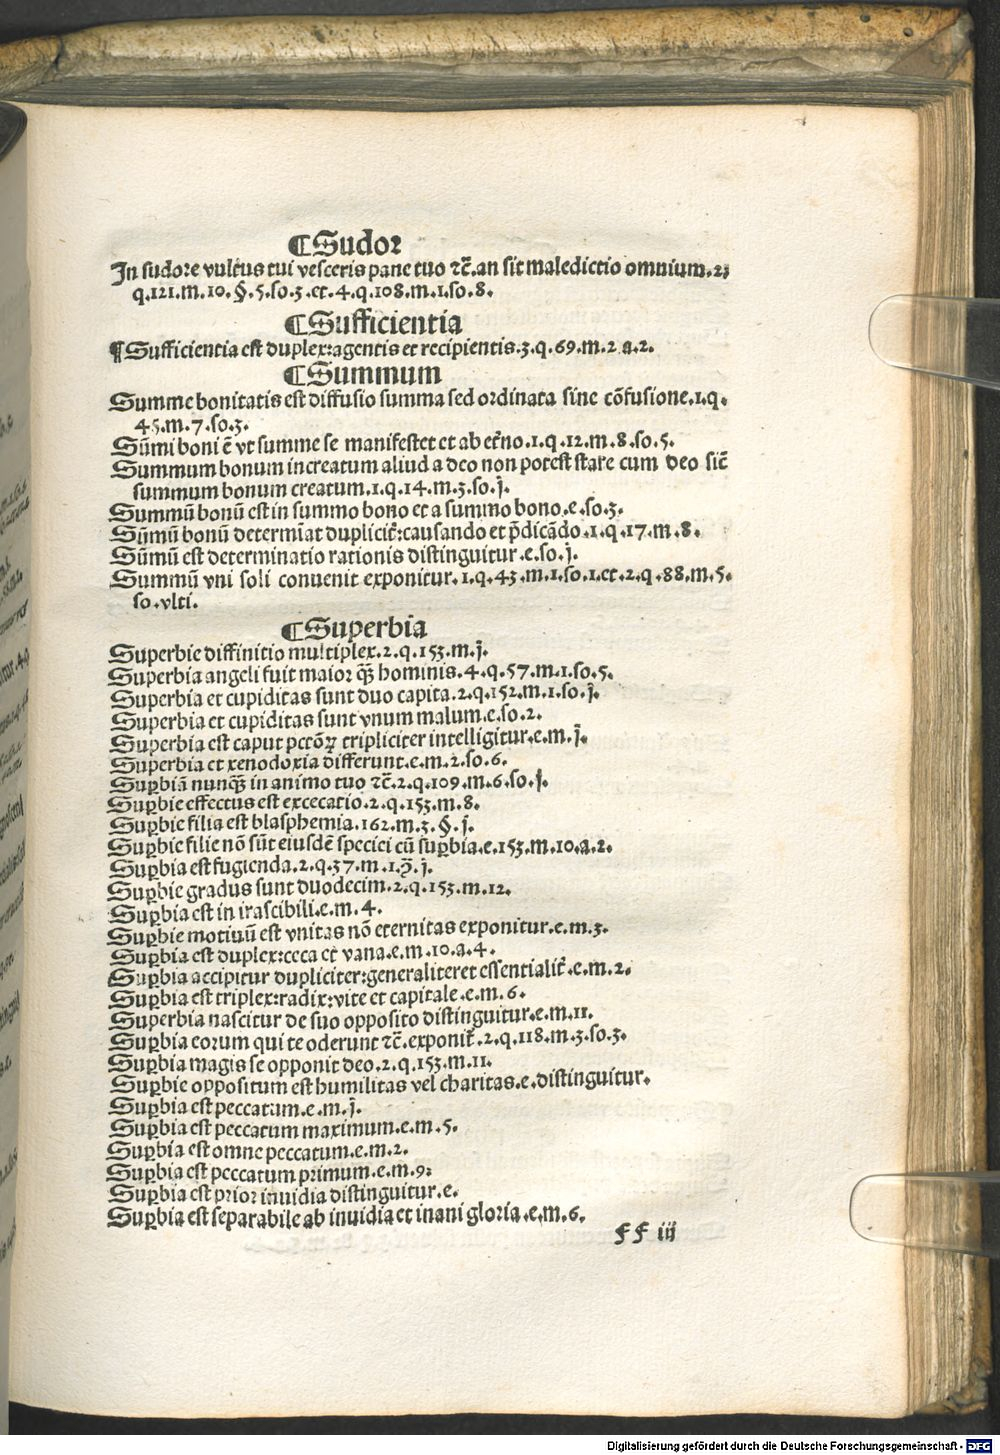 ¶Sudor
In sudore vultus tui vesceris pane tuo ⁊c̄.an sit maledictio omnium.2;
q.121.m.10.§.5.so.3.et.4.q.108.m.1.so.8.
¶Sufficientia
¶Sufficientia est duplex:agentis et recipientis.3.q.69.m.2 a.2.
¶Summum
Summe bonitatis est diffusio summa sed ordinata sine cōfusione.1.q.
45.m.7.so.3.
Sūmi boni ē vt summe se manifestet et ab et̄no.1.q.12.m.8.so.5.
Summum bonum increatum aliud a deo non potest stare cum deo sic̄
summum bonum creatum.1.q.14.m.3.so.j̄.
Summū bonū est in summo bono et a summo bono.e.so.3.
Sūmū bonū determīat duplicit̄:causando et p̄dicādo.1.q.17.m.8.
Sūmū est determinatio rationis distinguitur.e.so.j̄.
Summū vni soli conuenit exponitur.1.q.43.m.1.so.1.et.2.q.88.m.5.
so.vlti.
¶Superbia
Superbie diffinitio multiplex.2.q.153.m.j̄.
Superbia angeli fuit maior q̄ꝫ hominis.4.q.57.m.1.so.5.
Superbia et cupiditas sunt duo capita.2.q.152.m.1.so.j̄.
Superbia et cupiditas sunt vnum malum.e.so.2.
Superbia est caput pctōꝝ tripliciter intelligitur.e.m.j̄.
Superbia et xenodoxia differunt.e.m.2.so.6.
Suꝑbiā nunq̄ꝫ in animo tuo ⁊c̄.2.q.109.m.6.so.j̄.
Suꝑbie effectus est excecatio.2.q.153.m.8.
Suꝑbie filia est blasphemia.162.m.3.§.j.
Suꝑbie filie nō sūt eiusdē speciei cū suꝑbia.e.153.m.10.a.2.
Suꝑbia est fugienda.2.q.37.m.1.j̄.
Suꝑbie gradus sunt duodecim.2.q.153.m.12.
Suꝑbia est in irascibili.e.m.4.
Suꝑbie motiuū est vnitas nō eternitas exponitur.e.m.3.
Suꝑbia est duplex:ceca et vana.e.m.10.a.4.
Suꝑbia accipitur dupliciter:generaliter et essentialit̄.e.m.2.
Suꝑbia est triplex:radix:vite et capitale.e.m.6.
Superbia nascitur de suo opposito distinguitur.e.m.11.
Suꝑbia eorum qui te oderunt ⁊c̄.exponit̄.2.q.118.m.3.so.3.
Suꝑbia magis se opponit deo.2.q.153.m.11.
Suꝑbie oppositum est humilitas vel charitas.e.distinguitur.
Suꝑbia est peccatum.e.m.j̄.
Suꝑbia est peccatum maximum.e.m.5.
Suꝑbia est omne peccatum.e.m.2.
Suꝑbia est peccatum primum.e.m.9:
Suꝑbia est prior inuidia distinguitur.e.
Suꝑbia est separabile ab inuidia et inani gloria.e.m.6.
FF iij
Digitalisierung gefördert durch die Deutsche Forschungsgemeinschaft - DFG